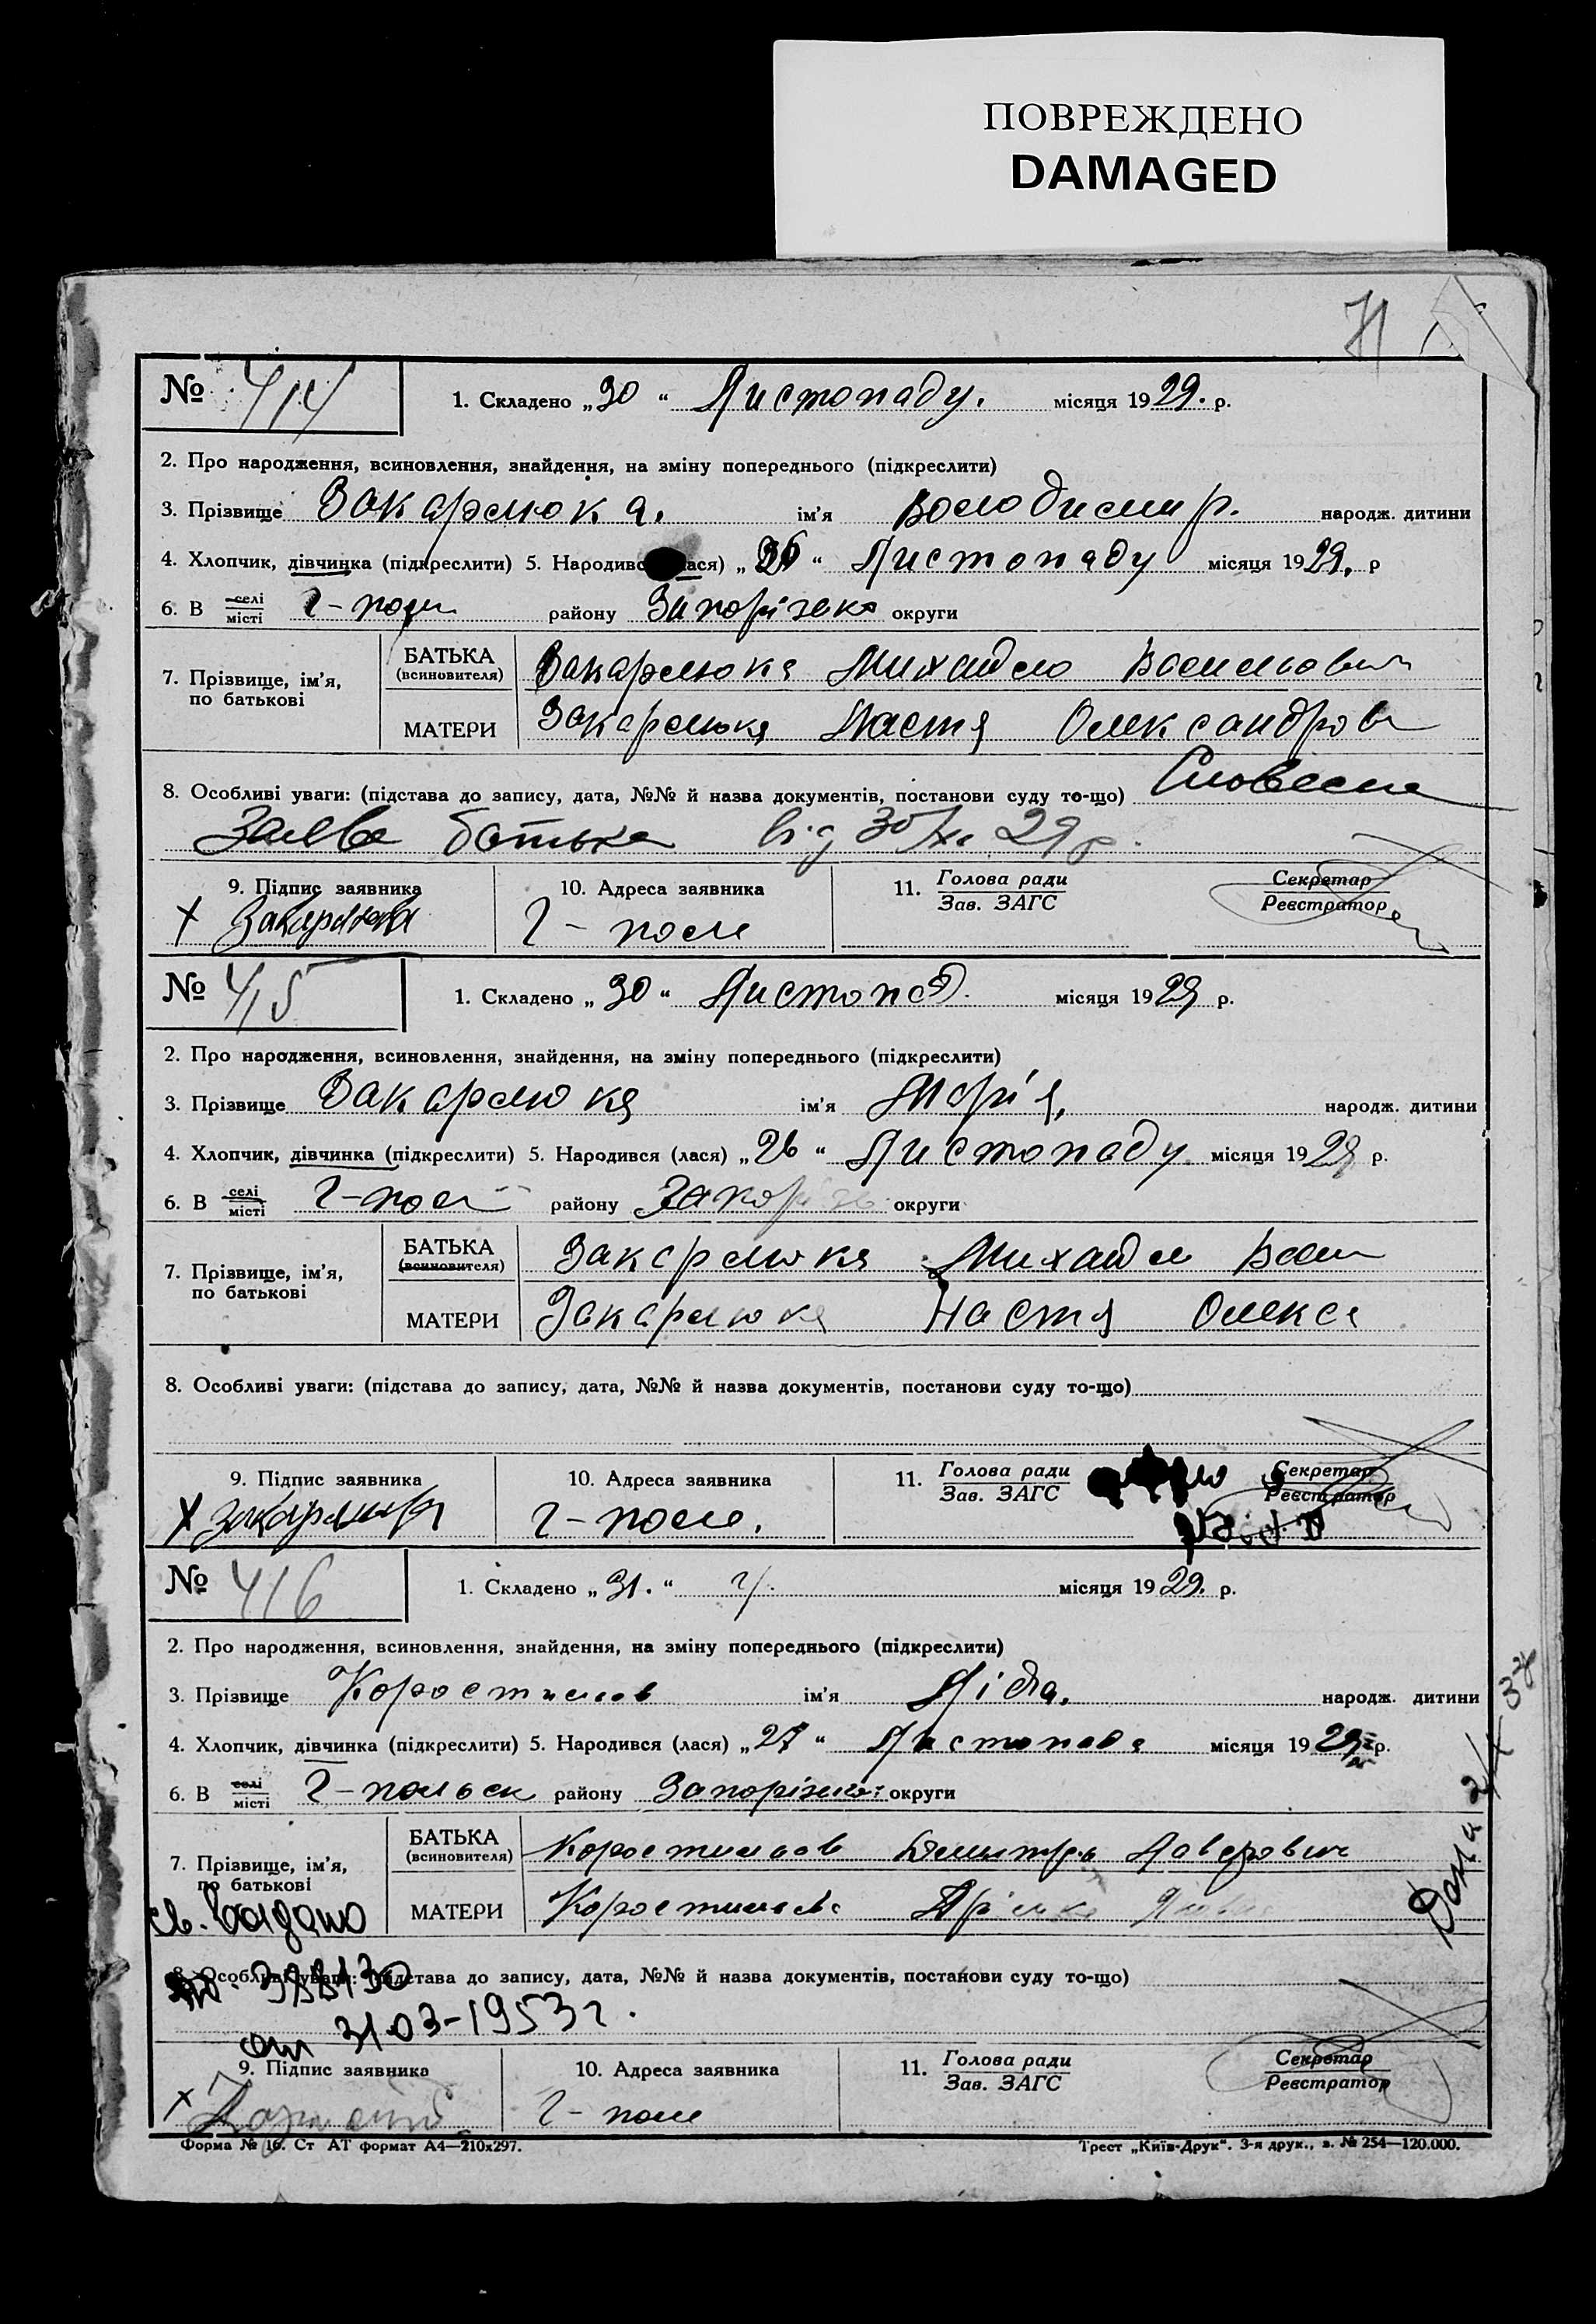 ПОВРЕЖДЕНО
DAMAGED
71
№ 414 1. Складено „30“ Листопаду. місяця 1929. р.
2. Про народження, всиновлення, знайдення, на зміну попереднього (підкреслити)
3. Прізвище Закарлюка. ім'я Володимир. народж. дитини
4. Хлопчик, дівчинка (підкреслити) 5. Народивс ася) „26“ Листопаду місяця 1929. р
6. В селі місті Г-поли району Запорізька округи
7. Прізвище, ім'я, по батькові
БАТЬКА (всиновителя) Закарлюка Михайло Васильович
МАТЕРИ Закарлюка Настя Олександров
8. Особливі уваги: (підстава до запису, дата, №№ й назва документів, постанови суду то-що) Словесна
Заява батька від 30/XI 29 р.
9. Підпис заявника 10. Адреса заявника 11. Голова ради Зав. ЗАГС Секретар Реєстратор
х Закарлюка Г-поле
№ 415 1. Складено „30“ Листопад. місяця 1929 р.
2. Про народження, всиновлення, знайдення, на зміну попереднього (підкреслити)
3. Прізвище Закарлюка ім'я Марія, народж. дитини
4. Хлопчик, дівчинка (підкреслити) 5. Народився (лася) „26“ Листопаду місяця 1929 р.
6. В селі місті Г-пол району Запоріз округи
7. Прізвище, ім'я, по батькові
БАТЬКА (всиновителя) Закарлюка Михайл Васи
МАТЕРИ Закарлюка Настя Олекса
8. Особливі уваги: (підстава до запису, дата, №№ й назва документів, постанови суду то-що)
9. Підпис заявника 10. Адреса заявника 11. Голова ради Зав. ЗАГС Секретар Реєстратор
х Закарлюка Г-поле.
№ 416 1. Складено „31.“ місяця 1929. р.
2. Про народження, всиновлення, знайдення, на зміну попереднього (підкреслити)
3. Прізвище Коростильов ім'я Ліда. народж. дитини
4. Хлопчик, дівчинка (підкреслити) 5. Народився (лася) „27“ Листопада місяця 1929 р.
6. В селі місті Г-польск району Запорізької округи
7. Прізвище, ім'я, по батькові
БАТЬКА (всиновителя) Коростильов Дмитро
МАТЕРИ Коростильова
св. выдано
8. Особливі уваги: (підстава до запису, дата, №№ й назва документів, постанови суду то-що)
от 31.03-1953 г.
9. Підпис заявника 10. Адреса заявника 11. Голова ради Зав. ЗАГС Секретар Реєстратор
х Г-поле
Форма № 16. Ст АТ формат А4—210х297. Трест „Київ-Друк“. 3-я друк., з. № 254—120.000.